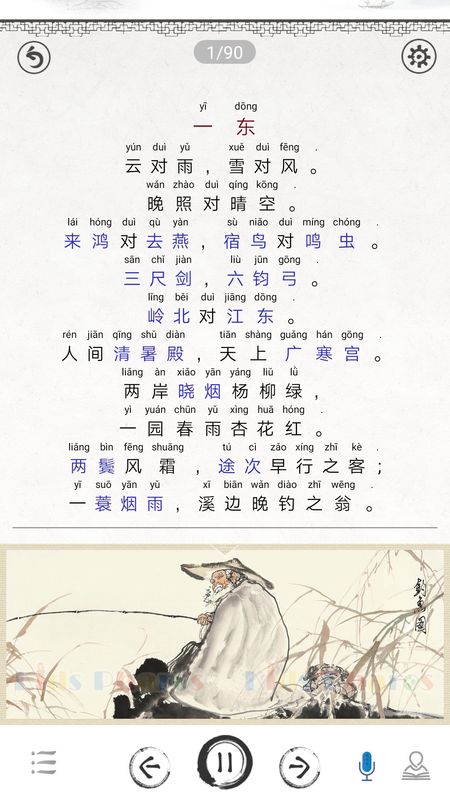 1/90
yī dōng
一 东
yún duì yǔ xuě duì fēng .
云对雨，雪对风。
wǎn zhào duì qíng kōng .
晚照对晴空。
lái hóng duì qù yàn sù niǎo duì míng chóng .
来鸿对去燕，宿鸟对鸣虫。
sān chǐ jiàn liù jūn gōng .
三尺剑，六钧弓。
lǐng běi duì jiāng dōng .
岭北对江东。
rén jiān qīng shǔ diàn tiān shàng guǎng hán gōng .
人间清暑殿，天上广寒宫。
liǎng àn xiǎo yān yáng liǔ lǜ
两岸晓烟杨柳绿，
yì yuán chūn yǔ xìng huā hóng .
一园春雨杏花红。
liǎng bìn fēng shuāng tú cì zǎo xíng zhī kè .
两鬓风霜，途次早行之客；
yì suō yān yǔ xī biān wǎn diào zhī wēng .
一蓑烟雨，溪边晚钓之翁。